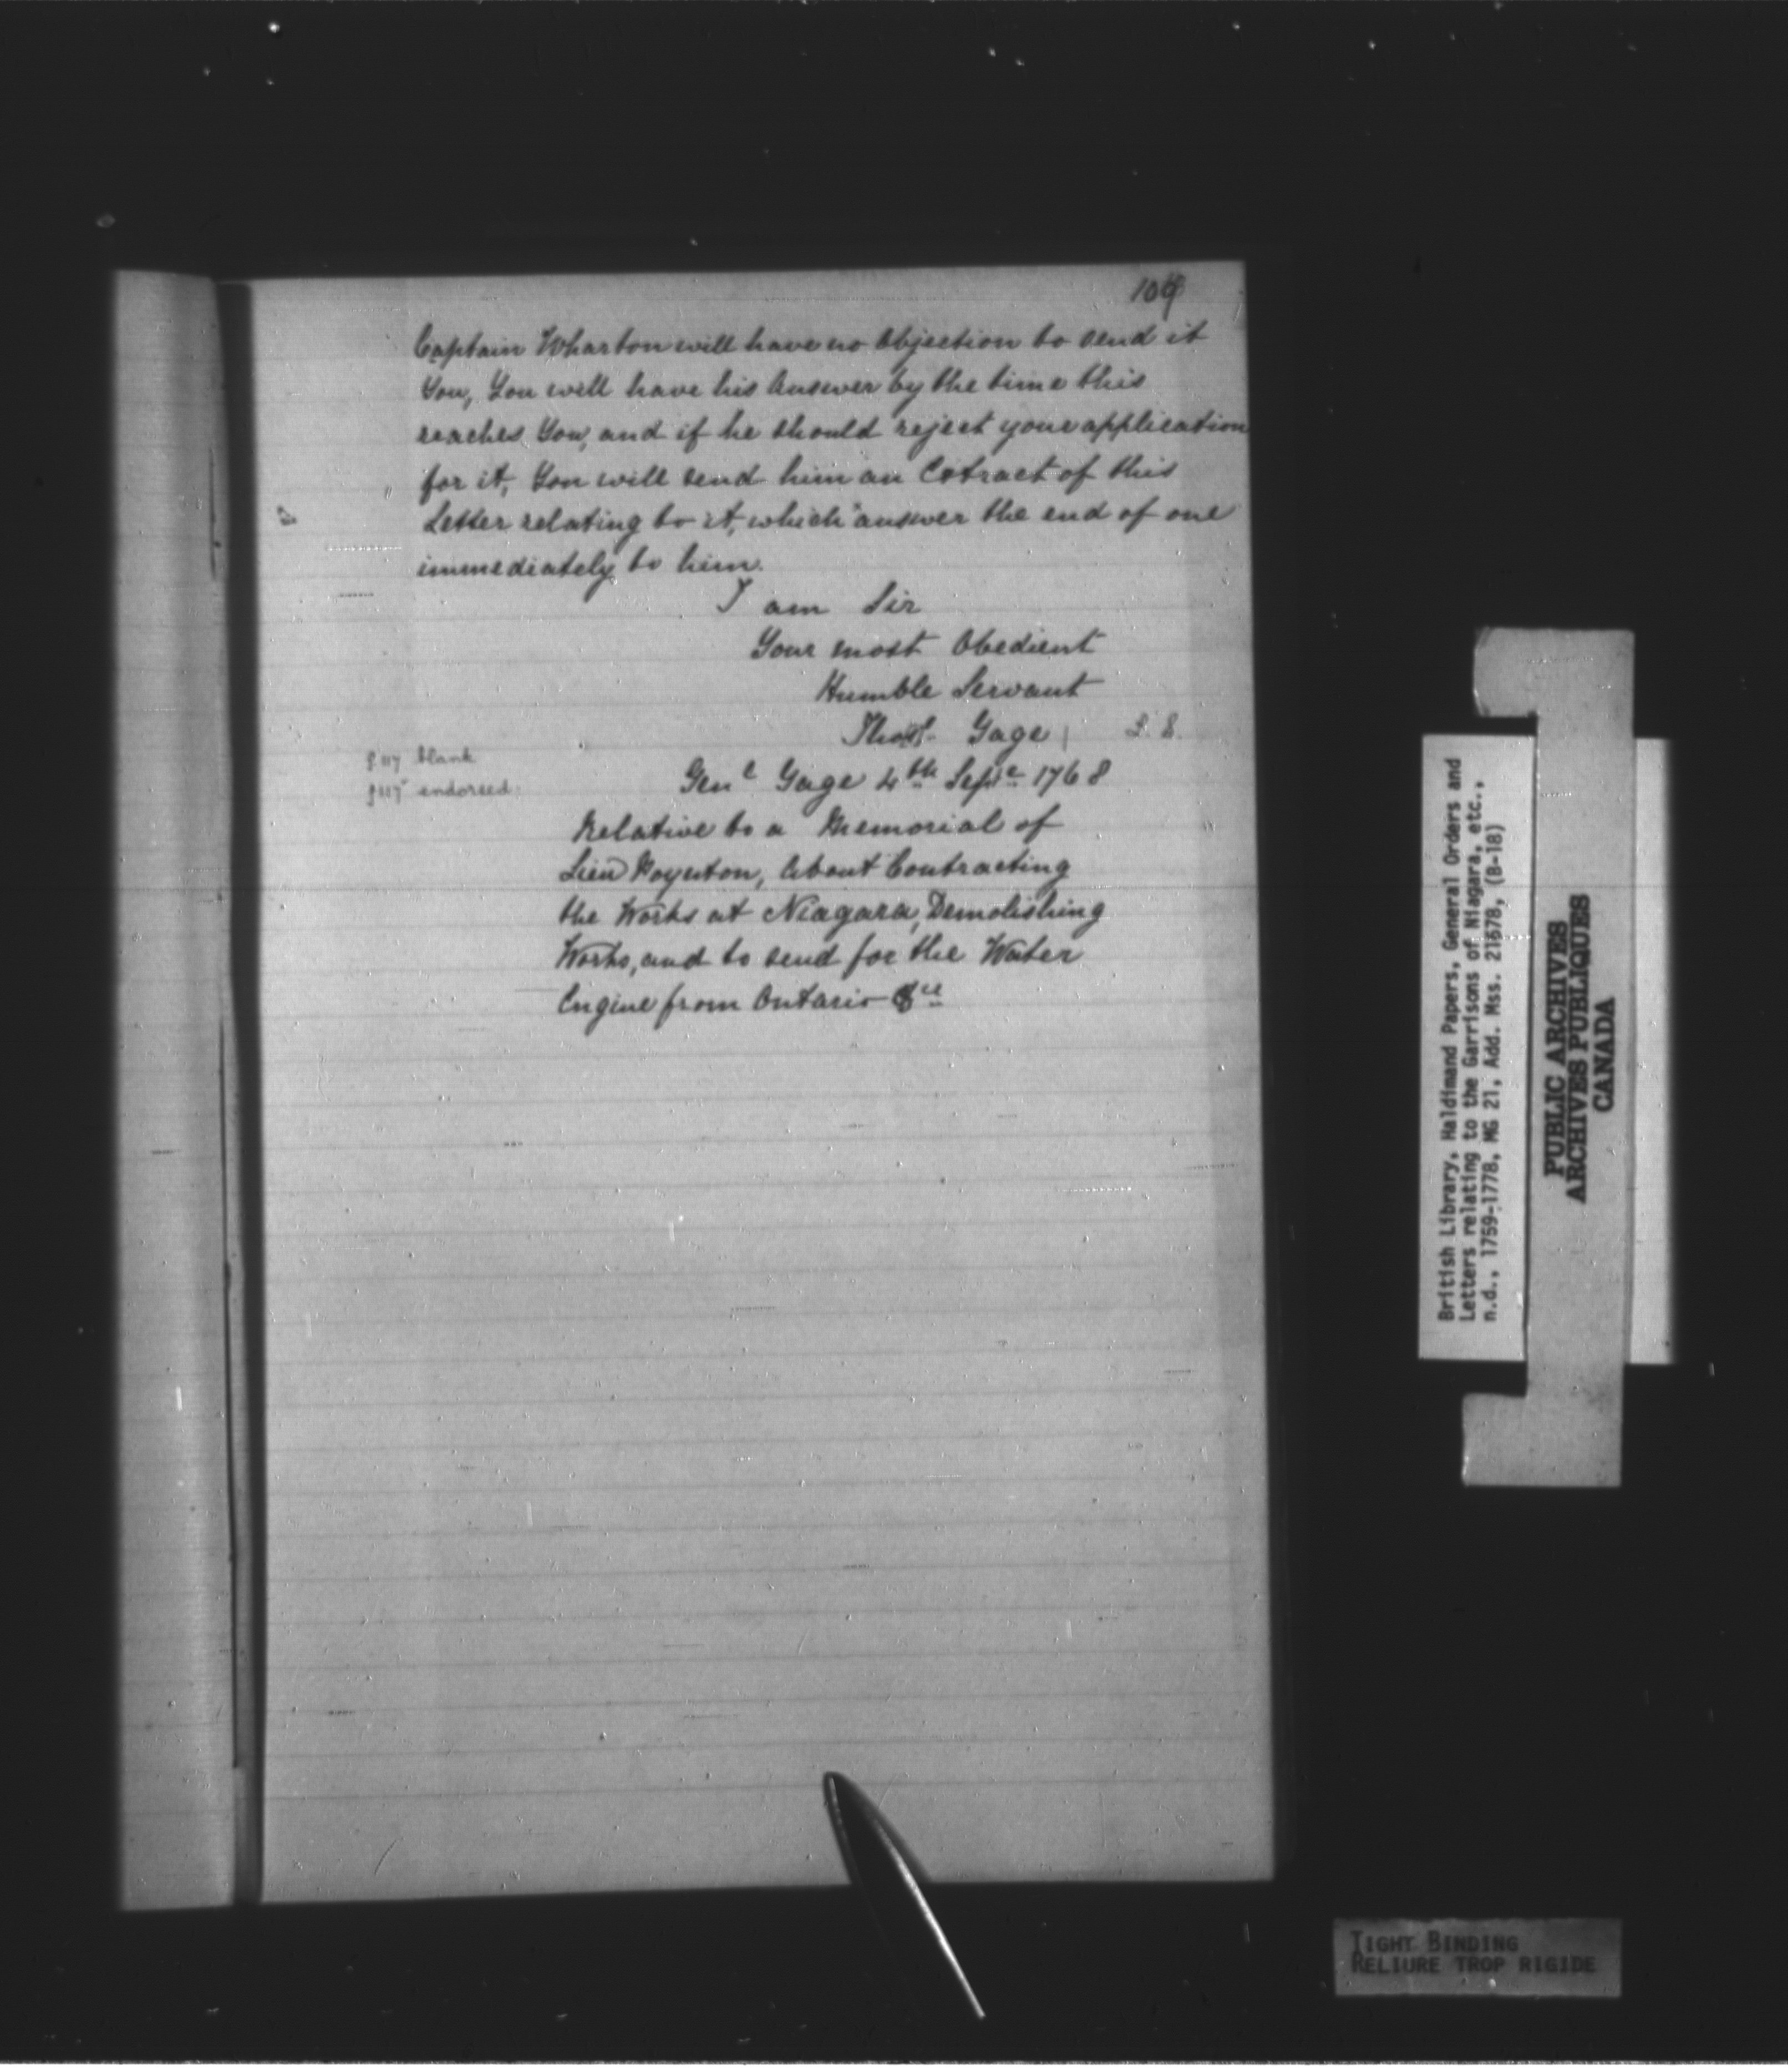 109
Captain Wharton will have no Objection to send it
You, You will have his Answer by the time this
reaches You, and if he should reject your application
for it, You will send him an Extract of this
Letter relating to it, which answer the end of one
immediately to him.
I am Sir
Your most Obedient
Humble Servant
Thos. Gage
L. S.
f.117 blank
f.117v endorsed:
Genl Gage 4th Sepr 1768
Relative to a Memorial of
Lieu Poynton, About Contracting
the Works at Niagara, Demolishing
Works, and to send for the Water
Engine from Ontario &ca
British Library, Haldimand Papers, General Orders and
Letters relating to the Garrisons of Niagara, etc.,
n.d., 1759-1778, MG 21, Add. Mss. 21678, (B-18)
PUBLIC ARCHIVES
ARCHIVES PUBLIQUES
CANADA
TIGHT BINDING
RELIURE TROP RIGIDE